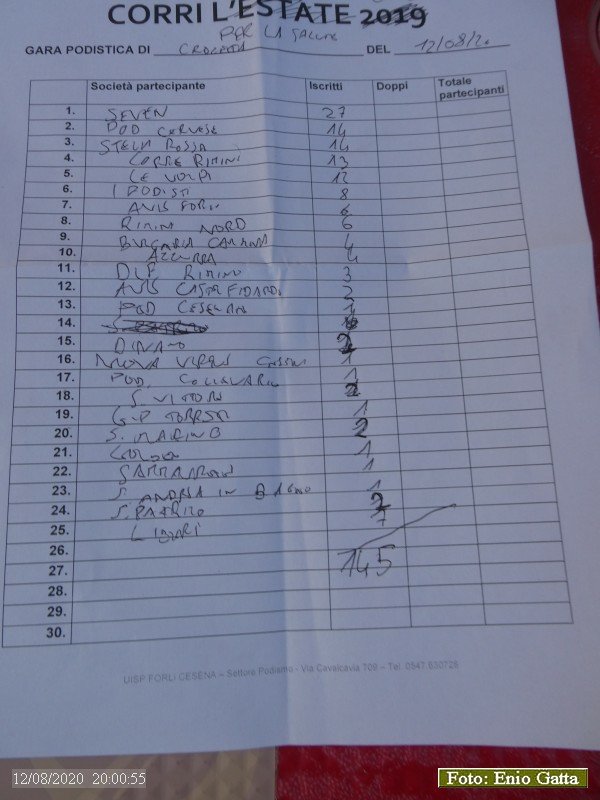 CORRI L'ESTATE 2019
PER LA SALUTE
GARA PODISTICA DI CROCETTA DEL 12/08/20
Società partecipante Iscritti Doppi Totale partecipanti
1. SEVEN 27
2. POD CERVESE 14
3. STELLA ROSSA 14
4. CORRE RIMINI 13
5. LE VOLPI 12
6. I PODISTI 8
7. AVIS FORLI 6
8. RIMINI NORD 6
9. BULGARIA 4
10. AZZURRA 4
11. DLF RIMINO 3
12. AVIS CASTELFIDARDO
13. POD CESENAN
14.
15. DINAMO 2
16. NUOVA VIRTUS CESENA 1
17. POD. 1
18. S. VITTORE 2
19. G.P 1
20. S. MARINO 2
21. 1
22. 1
23. S. ANDREA IN BAGNO 1
24. S. PATRIZIO 2
25. LIBERI 7
26. 145
27.
28.
29.
30.
UISP FORLI CESENA – Settore Podismo - Via Cavalcavia 709 – Tel. 0547 630728
12/08/2020 20:00:55
Foto: Enio Gatta